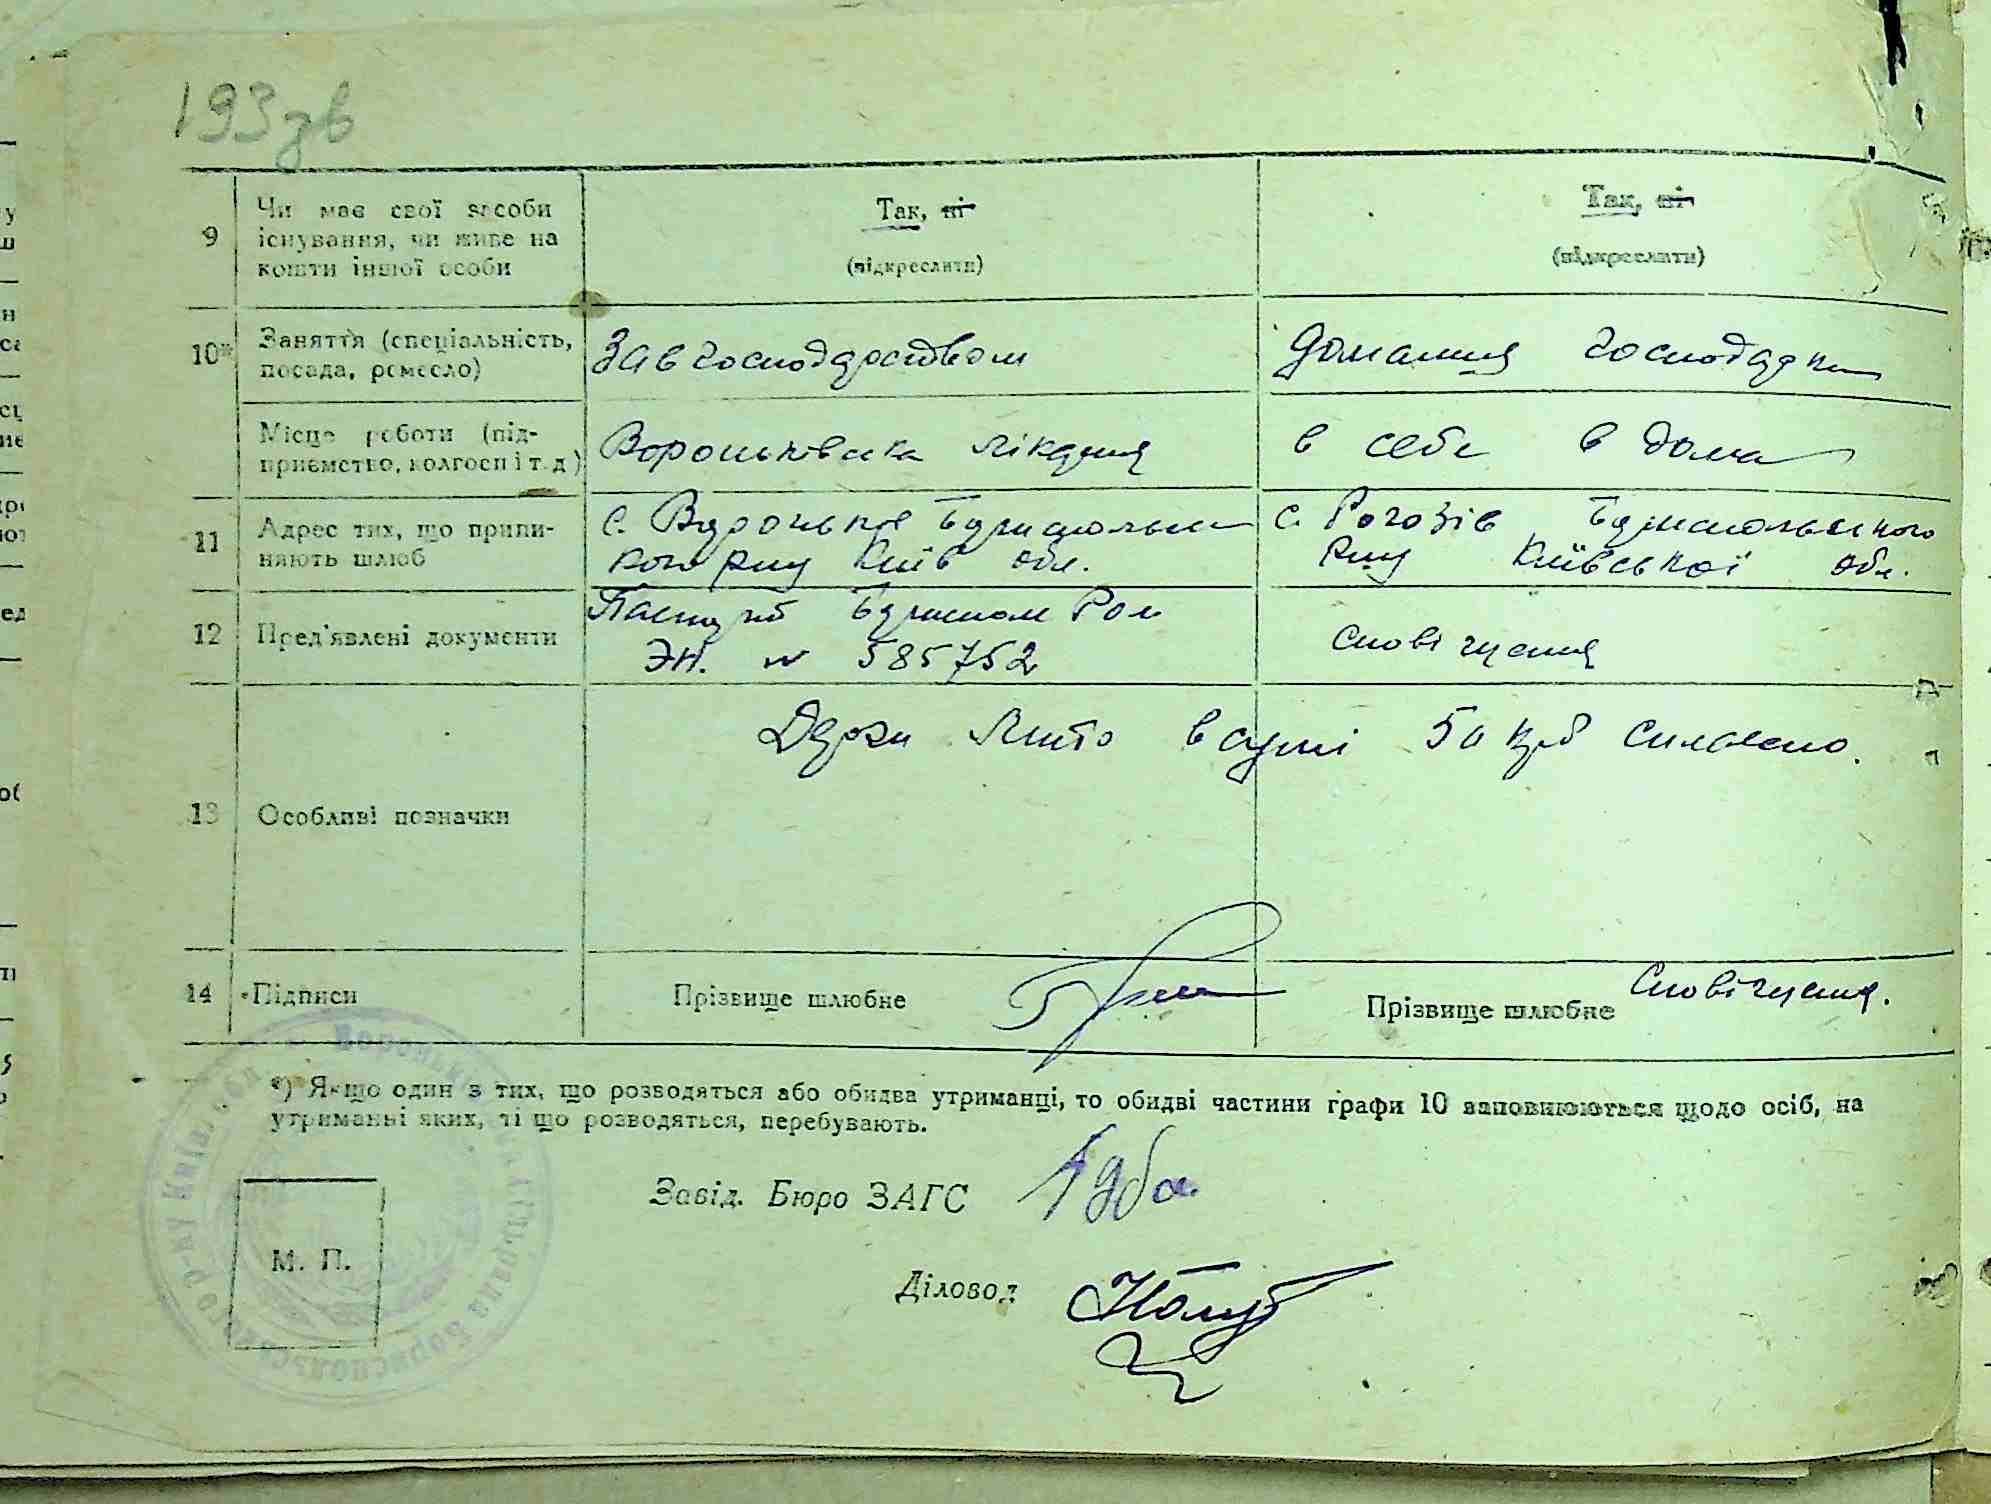 193 зв
9 Чи має свої засоби існування, чи живе на кошти іншої особи
Так, ні
(підкреслити)
Так, ні
(підкреслити)
10* Заняття (спеціальність, посада, ремесло)
Завгосподарством
домашня господарка
Місце роботи (підприємство, колгосп і т. д)
Вороньківська лікарня
в себе в дома
11 Адрес тих, що припиняють шлюб
с. Вороньків Бориспольського р-ну Київ обл.
с. Рогозів Бориспольського р-ну Київської обл.
12 Пред'явлені документи
Паспорт Бориспол Ром
ЭН. № 585752
сповіщення
13 Особливі позначки
Держ Мито в сумі 50 крб сплачено.
14 Підписи
Прізвище шлюбне
Прізвище шлюбне
Сповіщення.
*) Якщо один з тих, що розводяться або обидва утриманці, то обидві частини графи 10 заповнюються щодо осіб, на
утриманні яких, ті що розводяться, перебувають.
Завід. Бюро ЗАГС
М. П.
Діловод